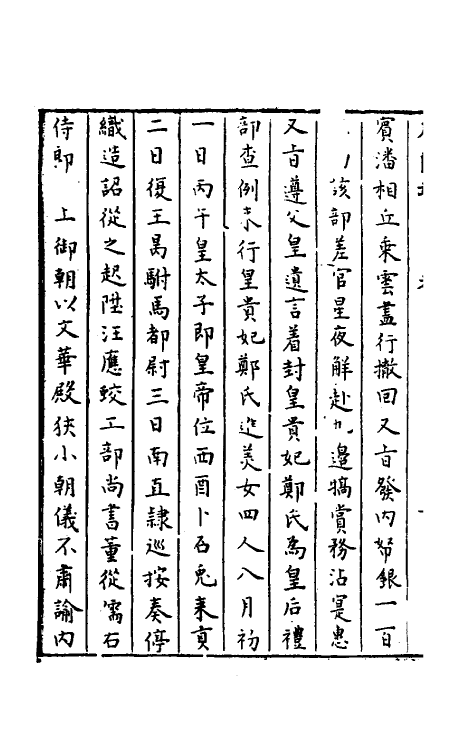 賓潘相丘乘雲盡行撤回又旨發內帑銀一百
該部差官星夜解赴九邊犒賞務沾寔惠
又旨遵父皇遺言着封皇貴妃鄭氏為皇后禮
部查例来行皇貴妃鄭氏進美女四人八月初
一日丙午皇太子即皇帝位西酉卜石兎来貢
二日復王昺駙馬都尉三日南直隷巡按奏停
織造詔從之起陞汪應蛟工部尚書董從儒右
侍郎　上御朝以文華殿狹小朝儀不肅諭內